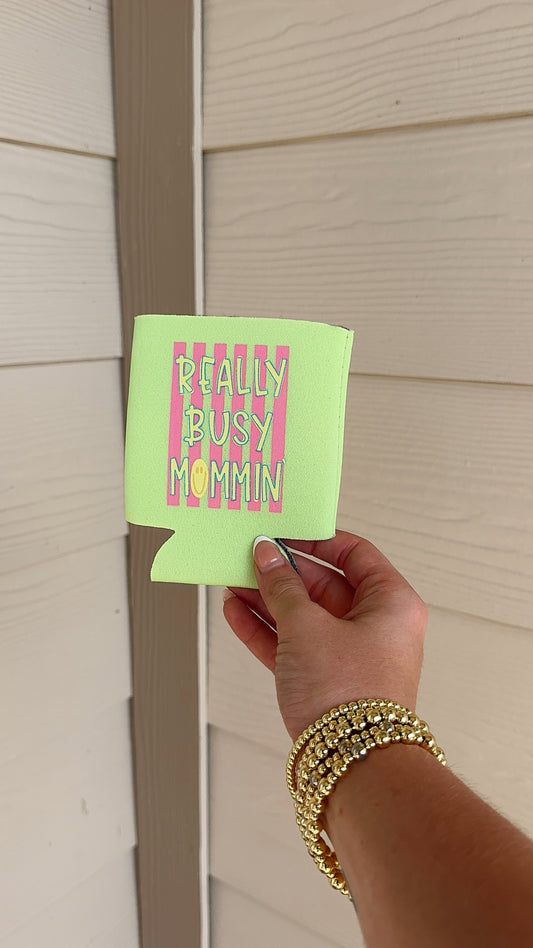 REALLY
BUSY
MOMMIN'